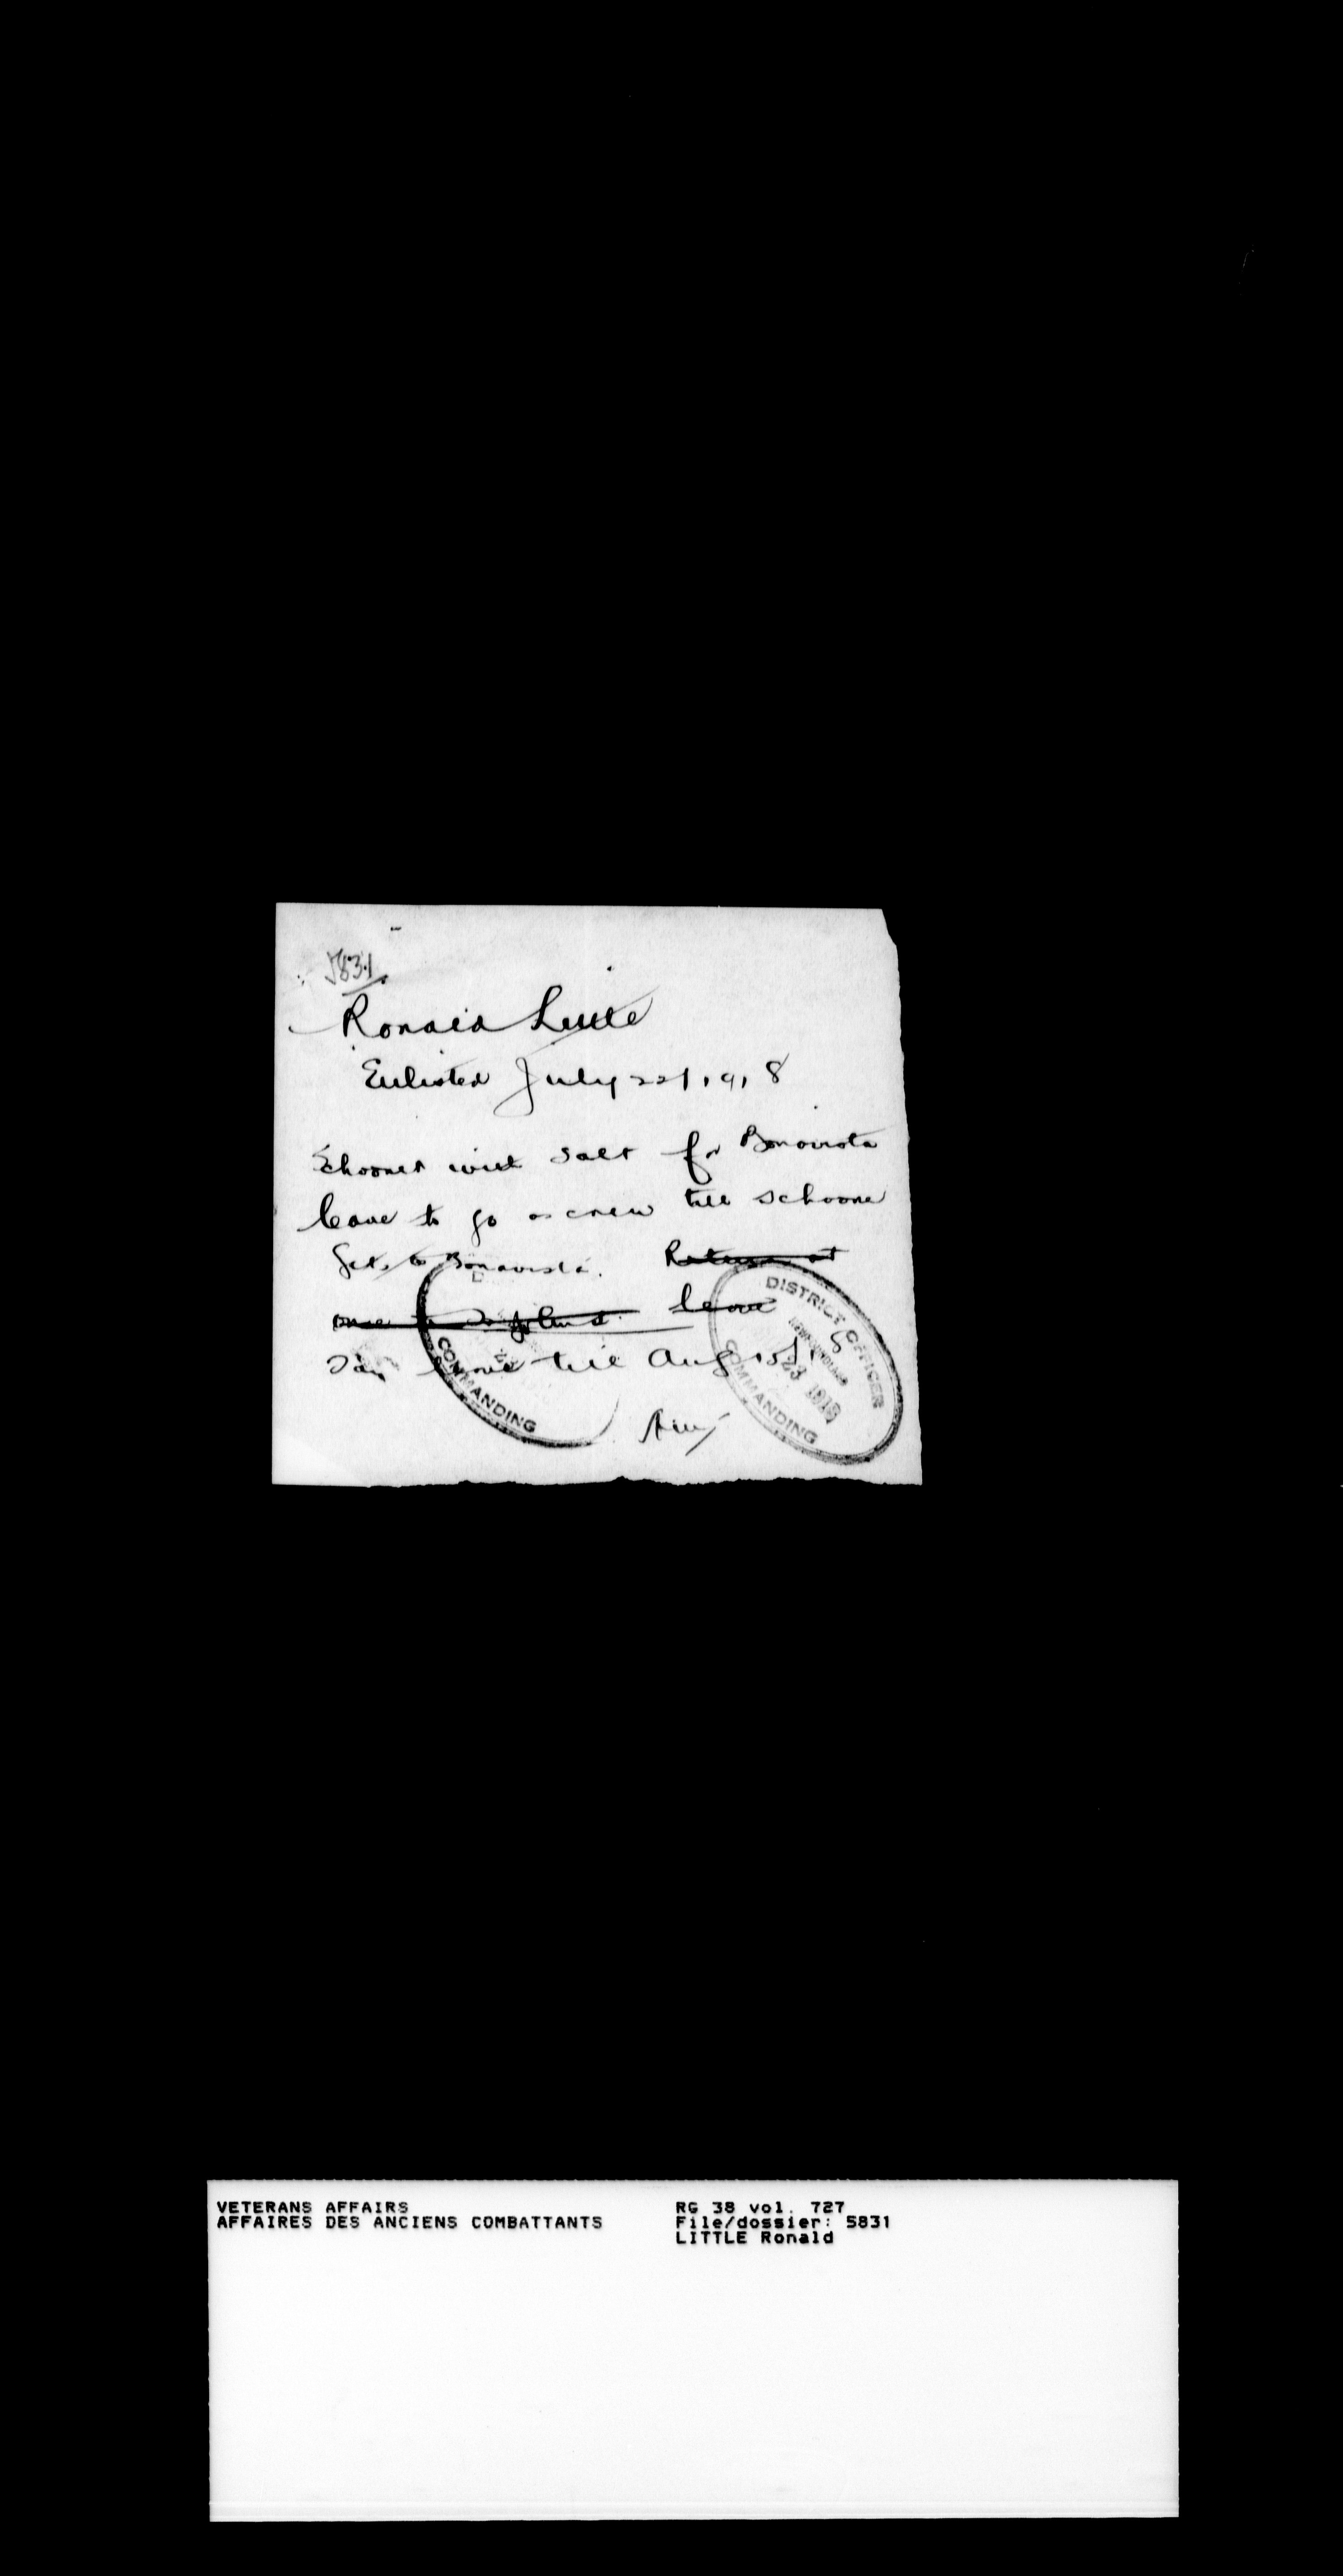 5831
Ronald Little
Enlisted July 22/1918
Schooner with salt for Bonavista
leave to go as crew till schooner
gets to Bonavista. Return at
once to St Johns. leave
leave till Aug 15/18
DISTRICT OFFICER
NEWFOUNDLAND
23 1918
COMMANDING
COMMANDING
VETERANS AFFAIRS
AFFAIRES DES ANCIENS COMBATTANTS
RG 38 vol. 727
File/dossier: 5831
LITTLE Ronald